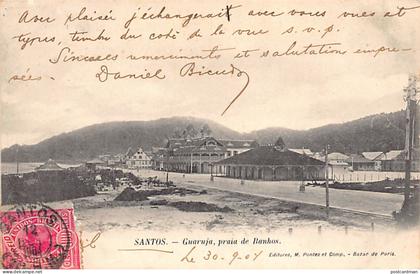 Avec plaisir j'échangerait avec vous vues et
types, timbre du coté de la vue s. v. p.
Sincères remerciments et salutation empre-
ssées. Daniel
SANTOS. — Guaruja, praia de Banhos.
Editores, M. Pontes et Comp., - Bazar de Paris.
le 30.9.04